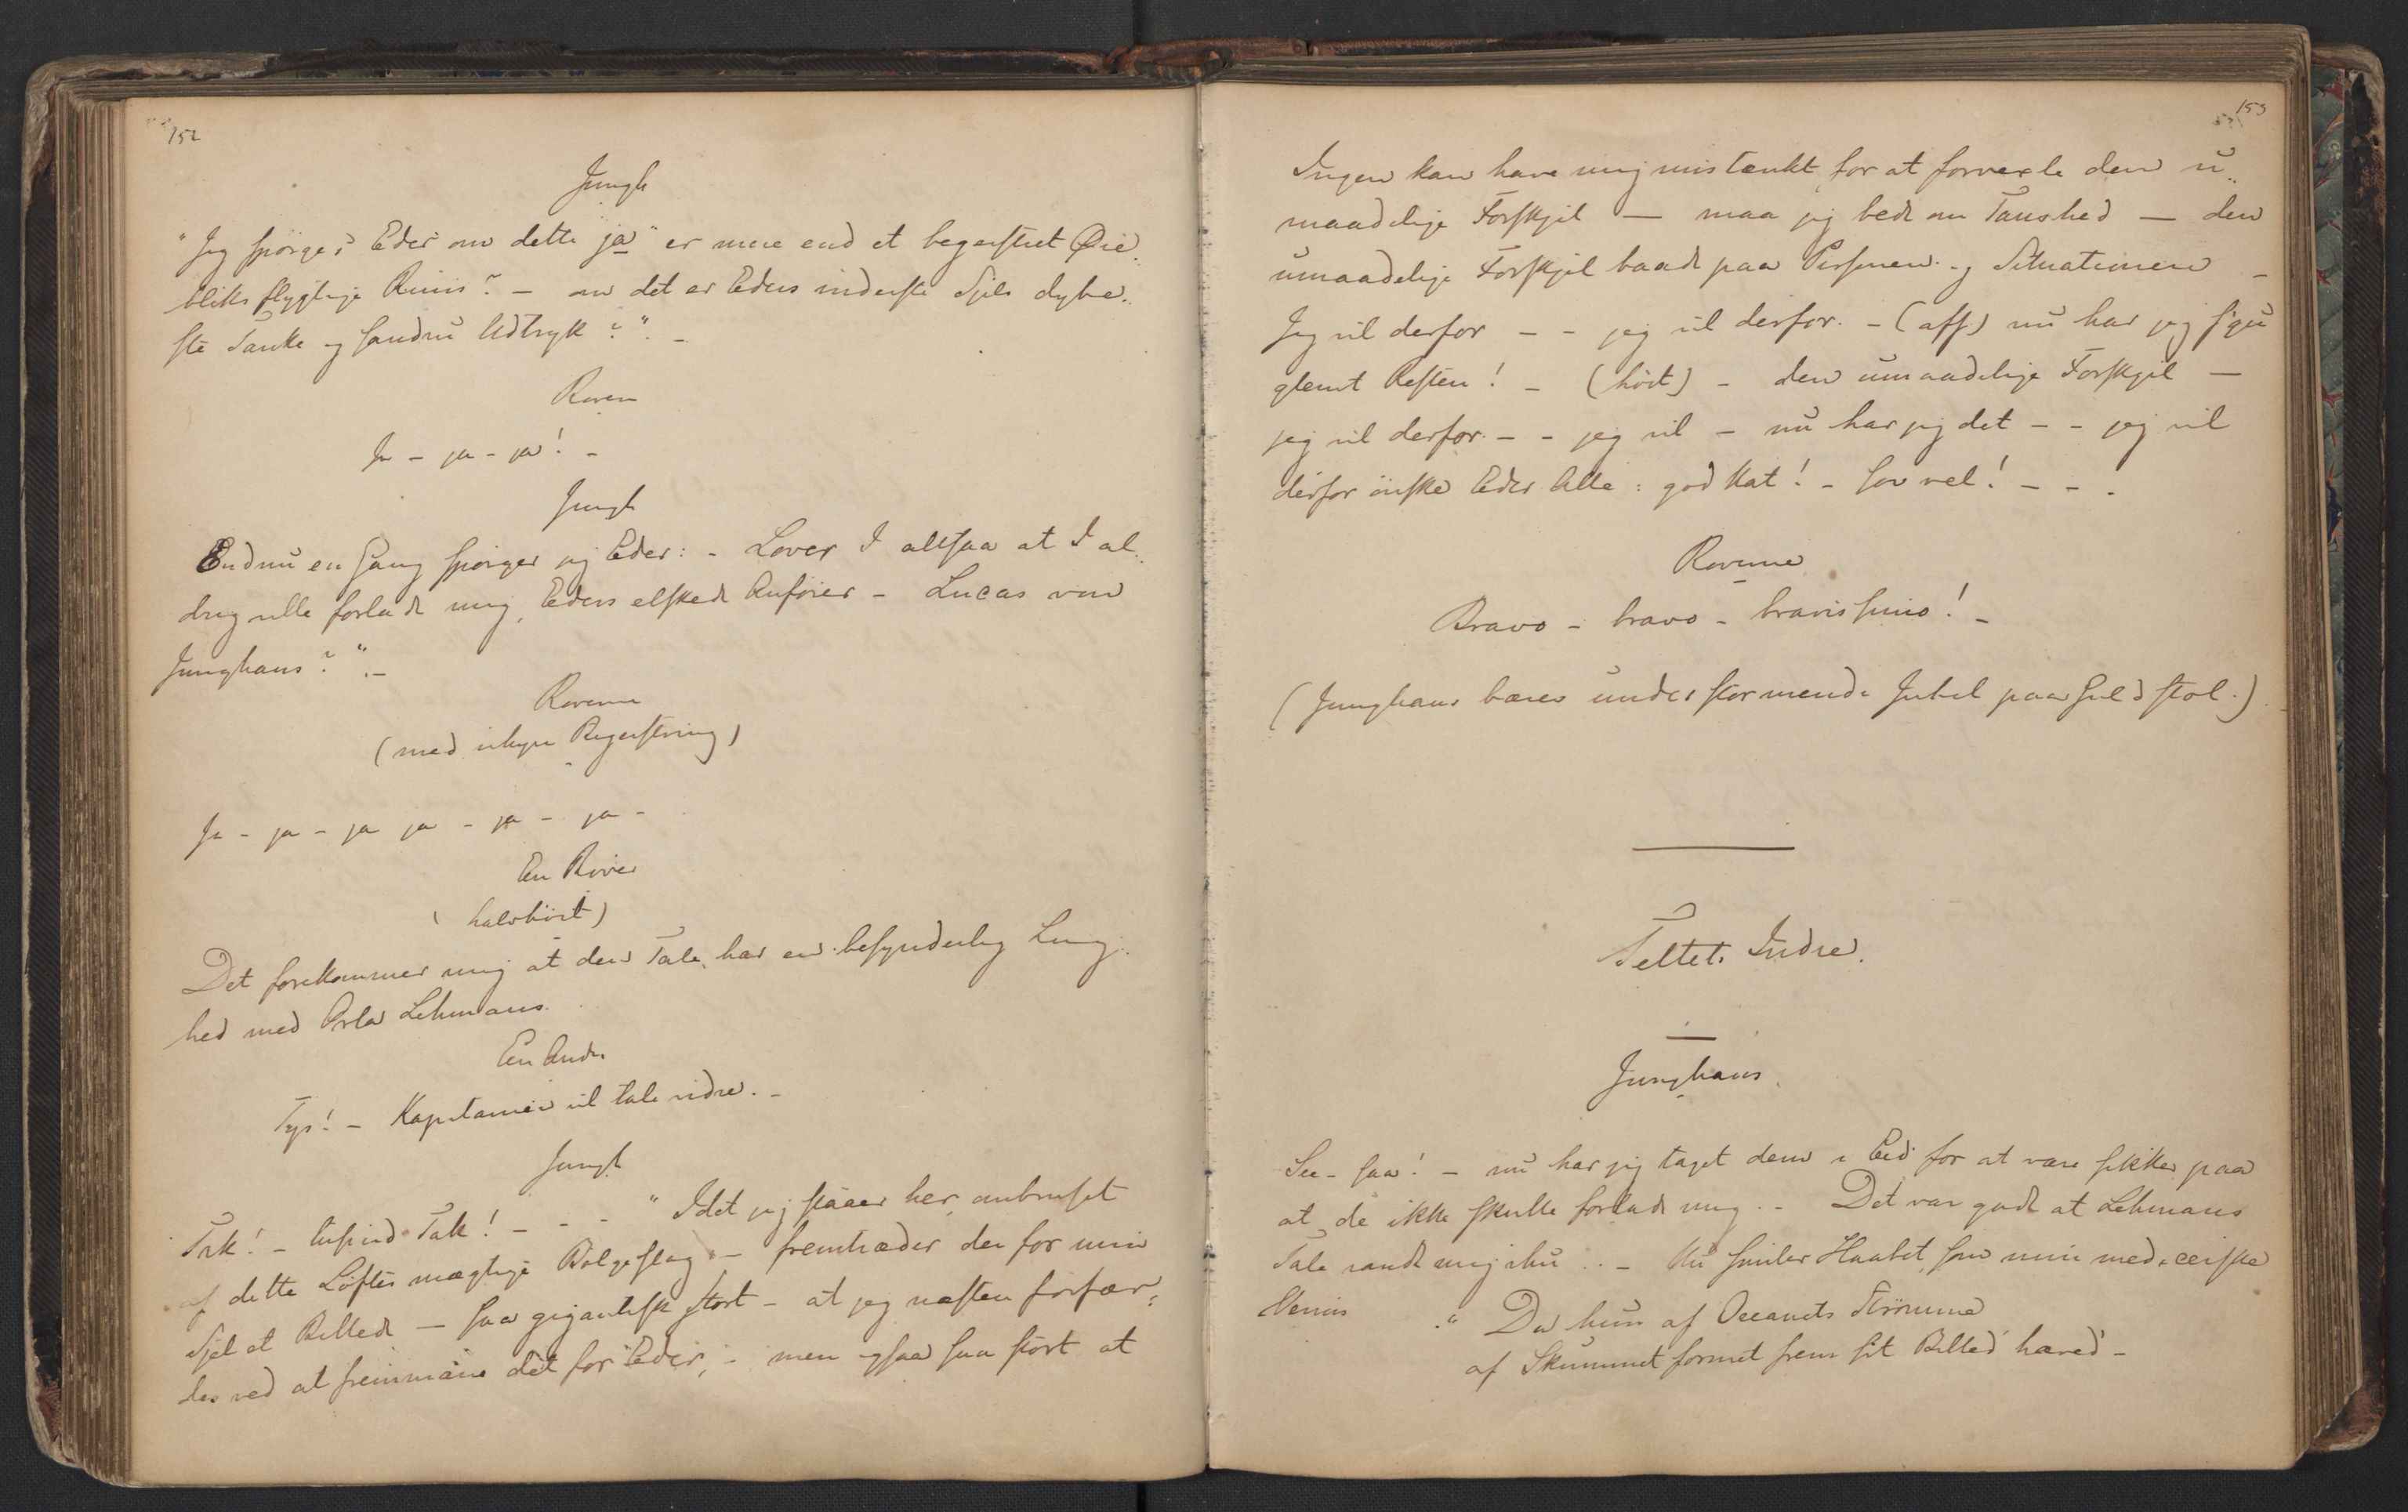 152
Jungh
"Jeg spörger Eder om dette ja" er mere end et begeistret Øie-
bliks flygtige Ruus? - om det er Eders inderste Sjels dybe-
ste Tanke og sandru Udtryk?" -
Roverne
Ja - ja - ja! -
Jungh
Endnu en Gang spörger jeg Eder: - Lover I altsaa at I al-
drig ville forlade mig, Eders elskede Anförer - Lucas von
Junghans?" . -
Roverne
(med uhyre Begeistring)
Ja - ja - ja ja - ja - ja -
En Röver
(halvhöit)
Det forekommer mig at den Tale har en besynderlig Liig-
hed med Orla Lehmans.
En Anden
Tys! - Kapitainen vil tale videre. -
Jungh
Tak! - tusind Tak! - - - "Idet jeg staaer her, ombruset
af dette Löftes mægtige Bölgeslag - fremtræder der for min
Sjel et Billede - saa gigantisk stort - at jeg næsten forfær-
des ved at fremmane det for Eder, - men ogsaa saa stort at
153
Ingen kan have mig mistænkt for at forvexle den u-
maadelige Forskjel - maa jeg bede om Taushed - den
umaadelige Forskjel baade paa Personen og Situationen -
Jeg vil derfor - - jeg vil derfor. - (aff) nu har jeg s'gu
glemt Resten! - (höit) - den umaadelige Forskjel -
jeg vil derfor - - jeg vil - nu har jeg det - - jeg vil
derfor önske Eder Alle: god Nat! - sov vel! - - -
Roverne
Bravo - bravo - bravissimo! -
(Junghans bæres under stormende Jubel paa Guldstol.)
Teltets Indre.
Junghans.
See - saa! - nu har jeg taget dem i Eed for at være sikker paa
at de ikke skulle forlade mig. - Det var godt at Lehmans
Tale randt mig ihu .. - Nu smiler Haabet som min mediceiske
Venus " Da hun af Oceanets Strömme
af Skummet formet frem sit Billed hæved' -